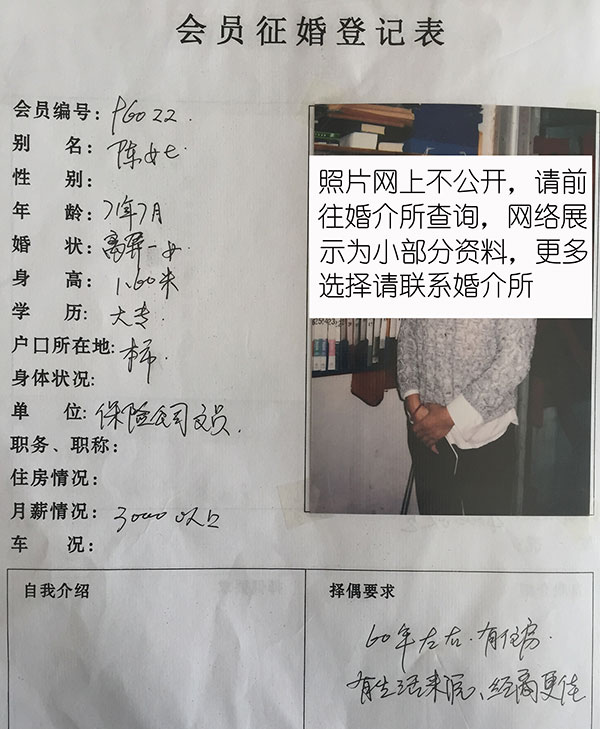 会员征婚登记表
会员编号：PG022.
别 名：陈女士.
性 别：
年 龄：71年7月
婚 状：离异一女
身 高：1.60米
学 历：大专.
户口所在地：本市.
身体状况：
单 位：保险公司文员.
职务、职称：
住房情况：
月薪情况：3000以上
车 况：
照片网上不公开，请前
往婚介所查询，网络展
示为小部分资料，更多
选择请联系婚介所
自我介绍
择偶要求
60年左右.有住房.
有生活来源、经商更佳